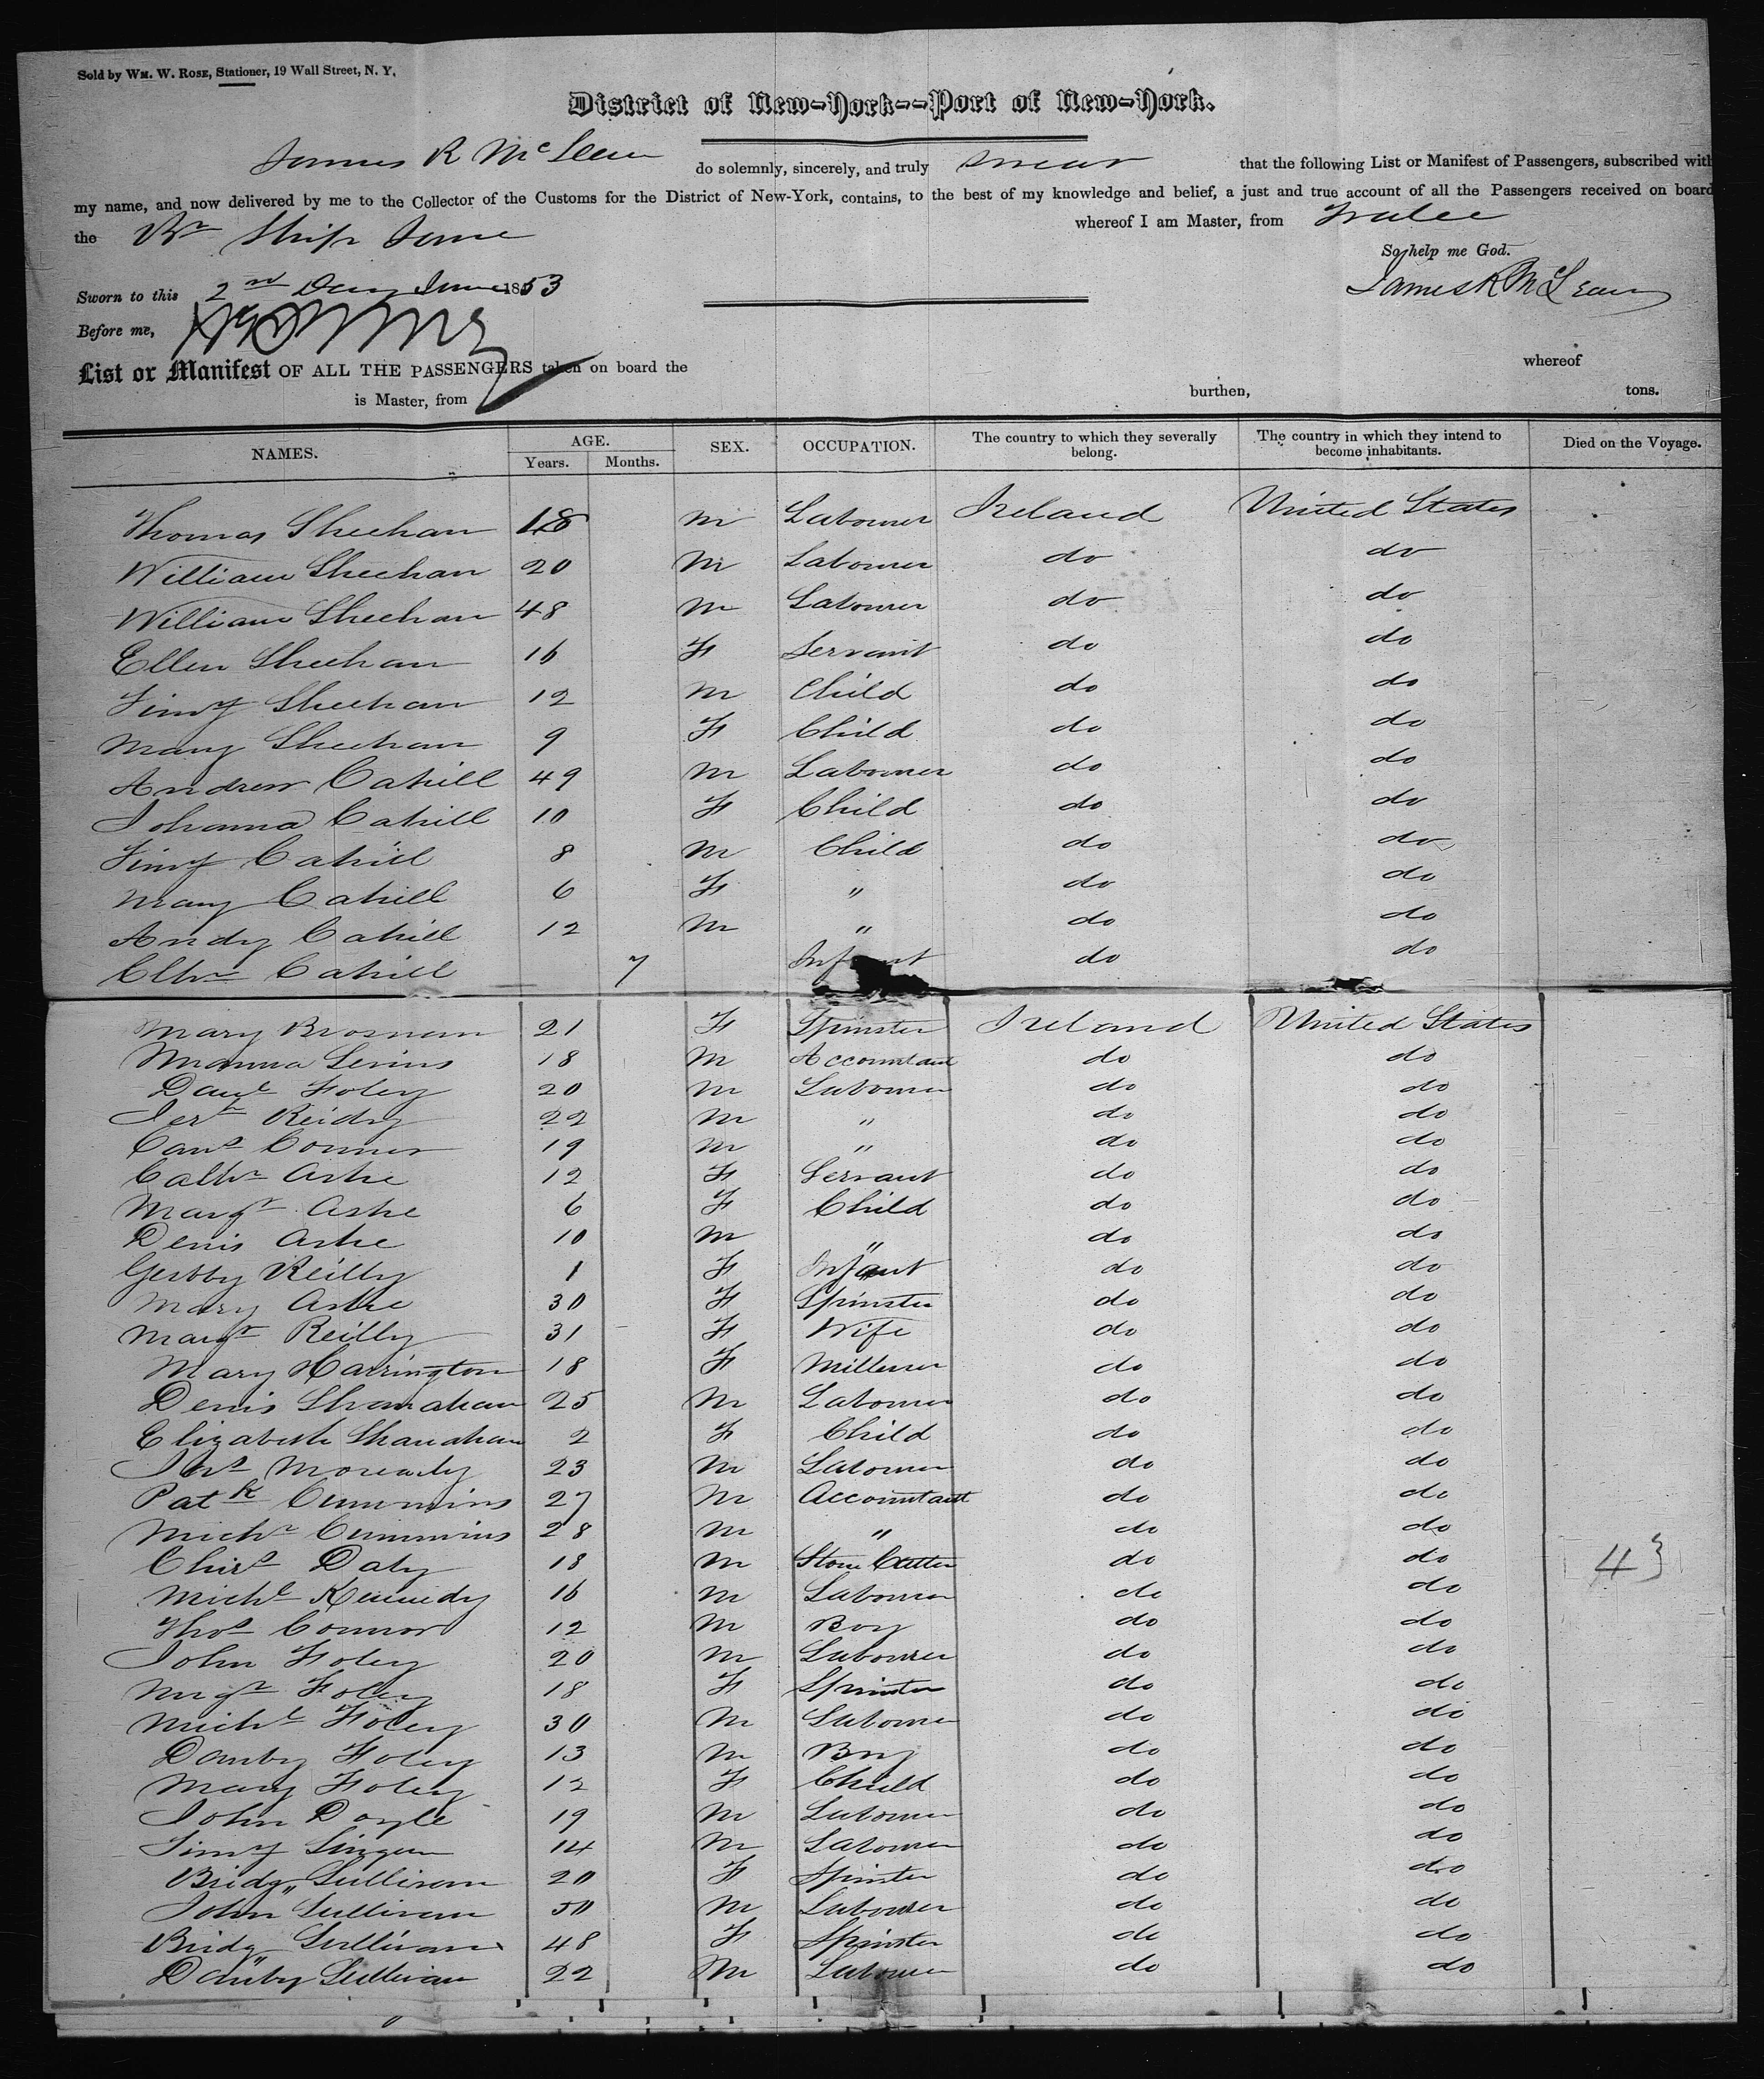 Sold by WM. W. ROSE, Stationer, 19 Wall Street, N. Y.
District of New-York--Port of New-York.
James R McLean do solemnly, sincerely, and truly swear that the following List or Manifest of Passengers, subscribed with
my name, and now delivered by me to the Collector of the Customs for the District of New-York, contains, to the best of my knowledge and belief, a just and true account of all the Passengers received on board
the Br Ship Jane whereof I am Master, from Tralee
So help me God.
Sworn to this 2nd Day June 1853 James R McLean
Before me,
List or Manifest OF ALL THE PASSENGERS taken on board the whereof
is Master, from burthen, tons.
NAMES. AGE. Years. Months. SEX. OCCUPATION. The country to which they severally belong. The country in which they intend to become inhabitants. Died on the Voyage.
Thomas Sheehan 18 M Labourer Ireland United States
William Sheehan 20 M Labourer do do
William Sheehan 48 M Labourer do do
Ellen Sheehan 16 F Servant do do
Timy Sheehan 12 M Child do do
Mary Sheehan 9 F Child do do
Andrew Cahill 49 M Labourer do do
Johanna Cahill 10 F Child do do
Timy Cahill 8 M Child do do
Mary Cahill 6 F " do do
Andy Cahill 12 M " do do
Cathn Cahill 7 Infant do do
Mary Brosnan 21 F Spinster Ireland United States
18 M Accountant do do
Danl Foley 20 M Labourer do do
Jerh Reidy 22 M " do do
Connor 19 M " do do
Cathn Ashe 12 F Servant do do
Margt Ashe 6 F Child do do
Denis Ashe 10 M " do do
Gerbby Reilly 1 F Infant do do
Mary Ashe 30 F Spinster do do
Margt Reilly 31 F Wife do do
Mary Harrington 18 F Milliner do do
Denis Shanahan 25 M Labourer do do
Elizabeth Shanahan 2 F Child do do
Jas Moriarty 23 M Labourer do do
Patk Cummins 27 M Accountant do do
Michl Cummins 28 M " do do
Chirs Daly 18 M Stone Cutter do do 43
Michl Kennedy 16 M Labourer do do
Thos Connor 12 M Boy do do
John Foley 20 M Labourer do do
Mrgt Foley 18 F Spinster do do
Michl Foley 30 M Labourer do do
Danby Foley 13 M Boy do do
Mary Foley 12 F Child do do
John Doyle 19 M Labourer do do
Timy 14 M Labourer do do
Bridg" Sullivan 20 F Spinster do do
John Sullivan 50 M Labourer do do
Bridg" Sullivan 48 F Spinster do do
Danby Sullivan 22 M Labourer do do